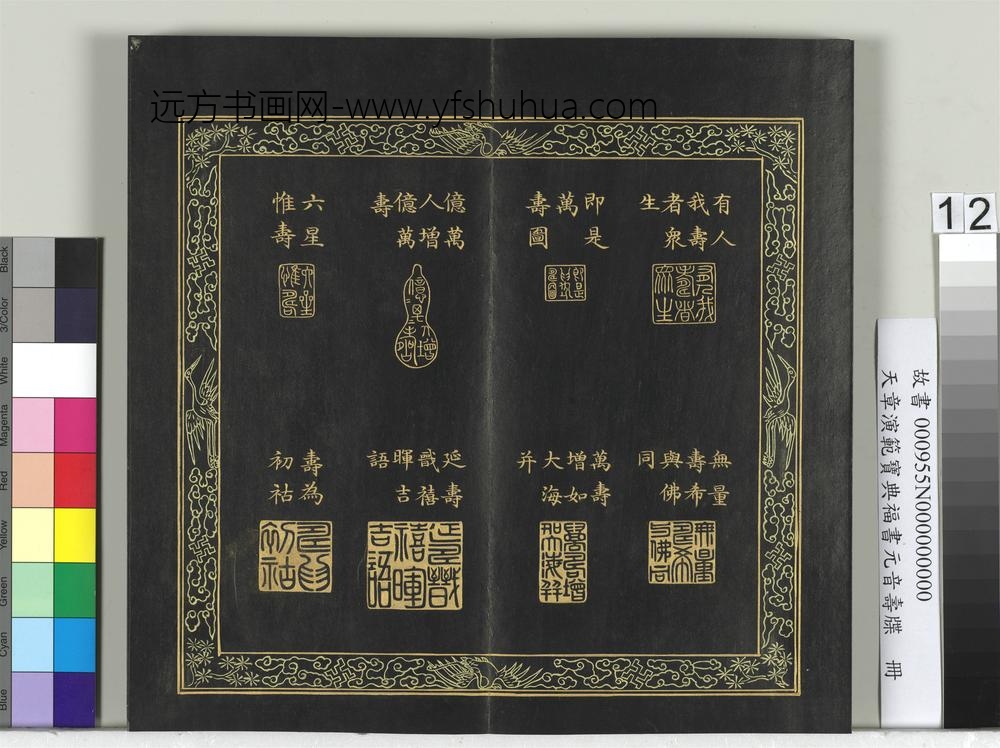 远方书画网-www.yfshuhua.com
有人
我壽
者衆
生
即是
萬
壽圖
億萬
人增
億萬
壽
六星
惟壽
無量
壽希
與佛
同
萬壽
增如
大海
并
延壽
戩禧
暉吉
語
壽為
初祜
12
故書 000955N000000000
天章演範寶典福書元音壽牒 冊
Black
3/Color
White
Magenta
Red
Yellow
Green
Cyan
Blue